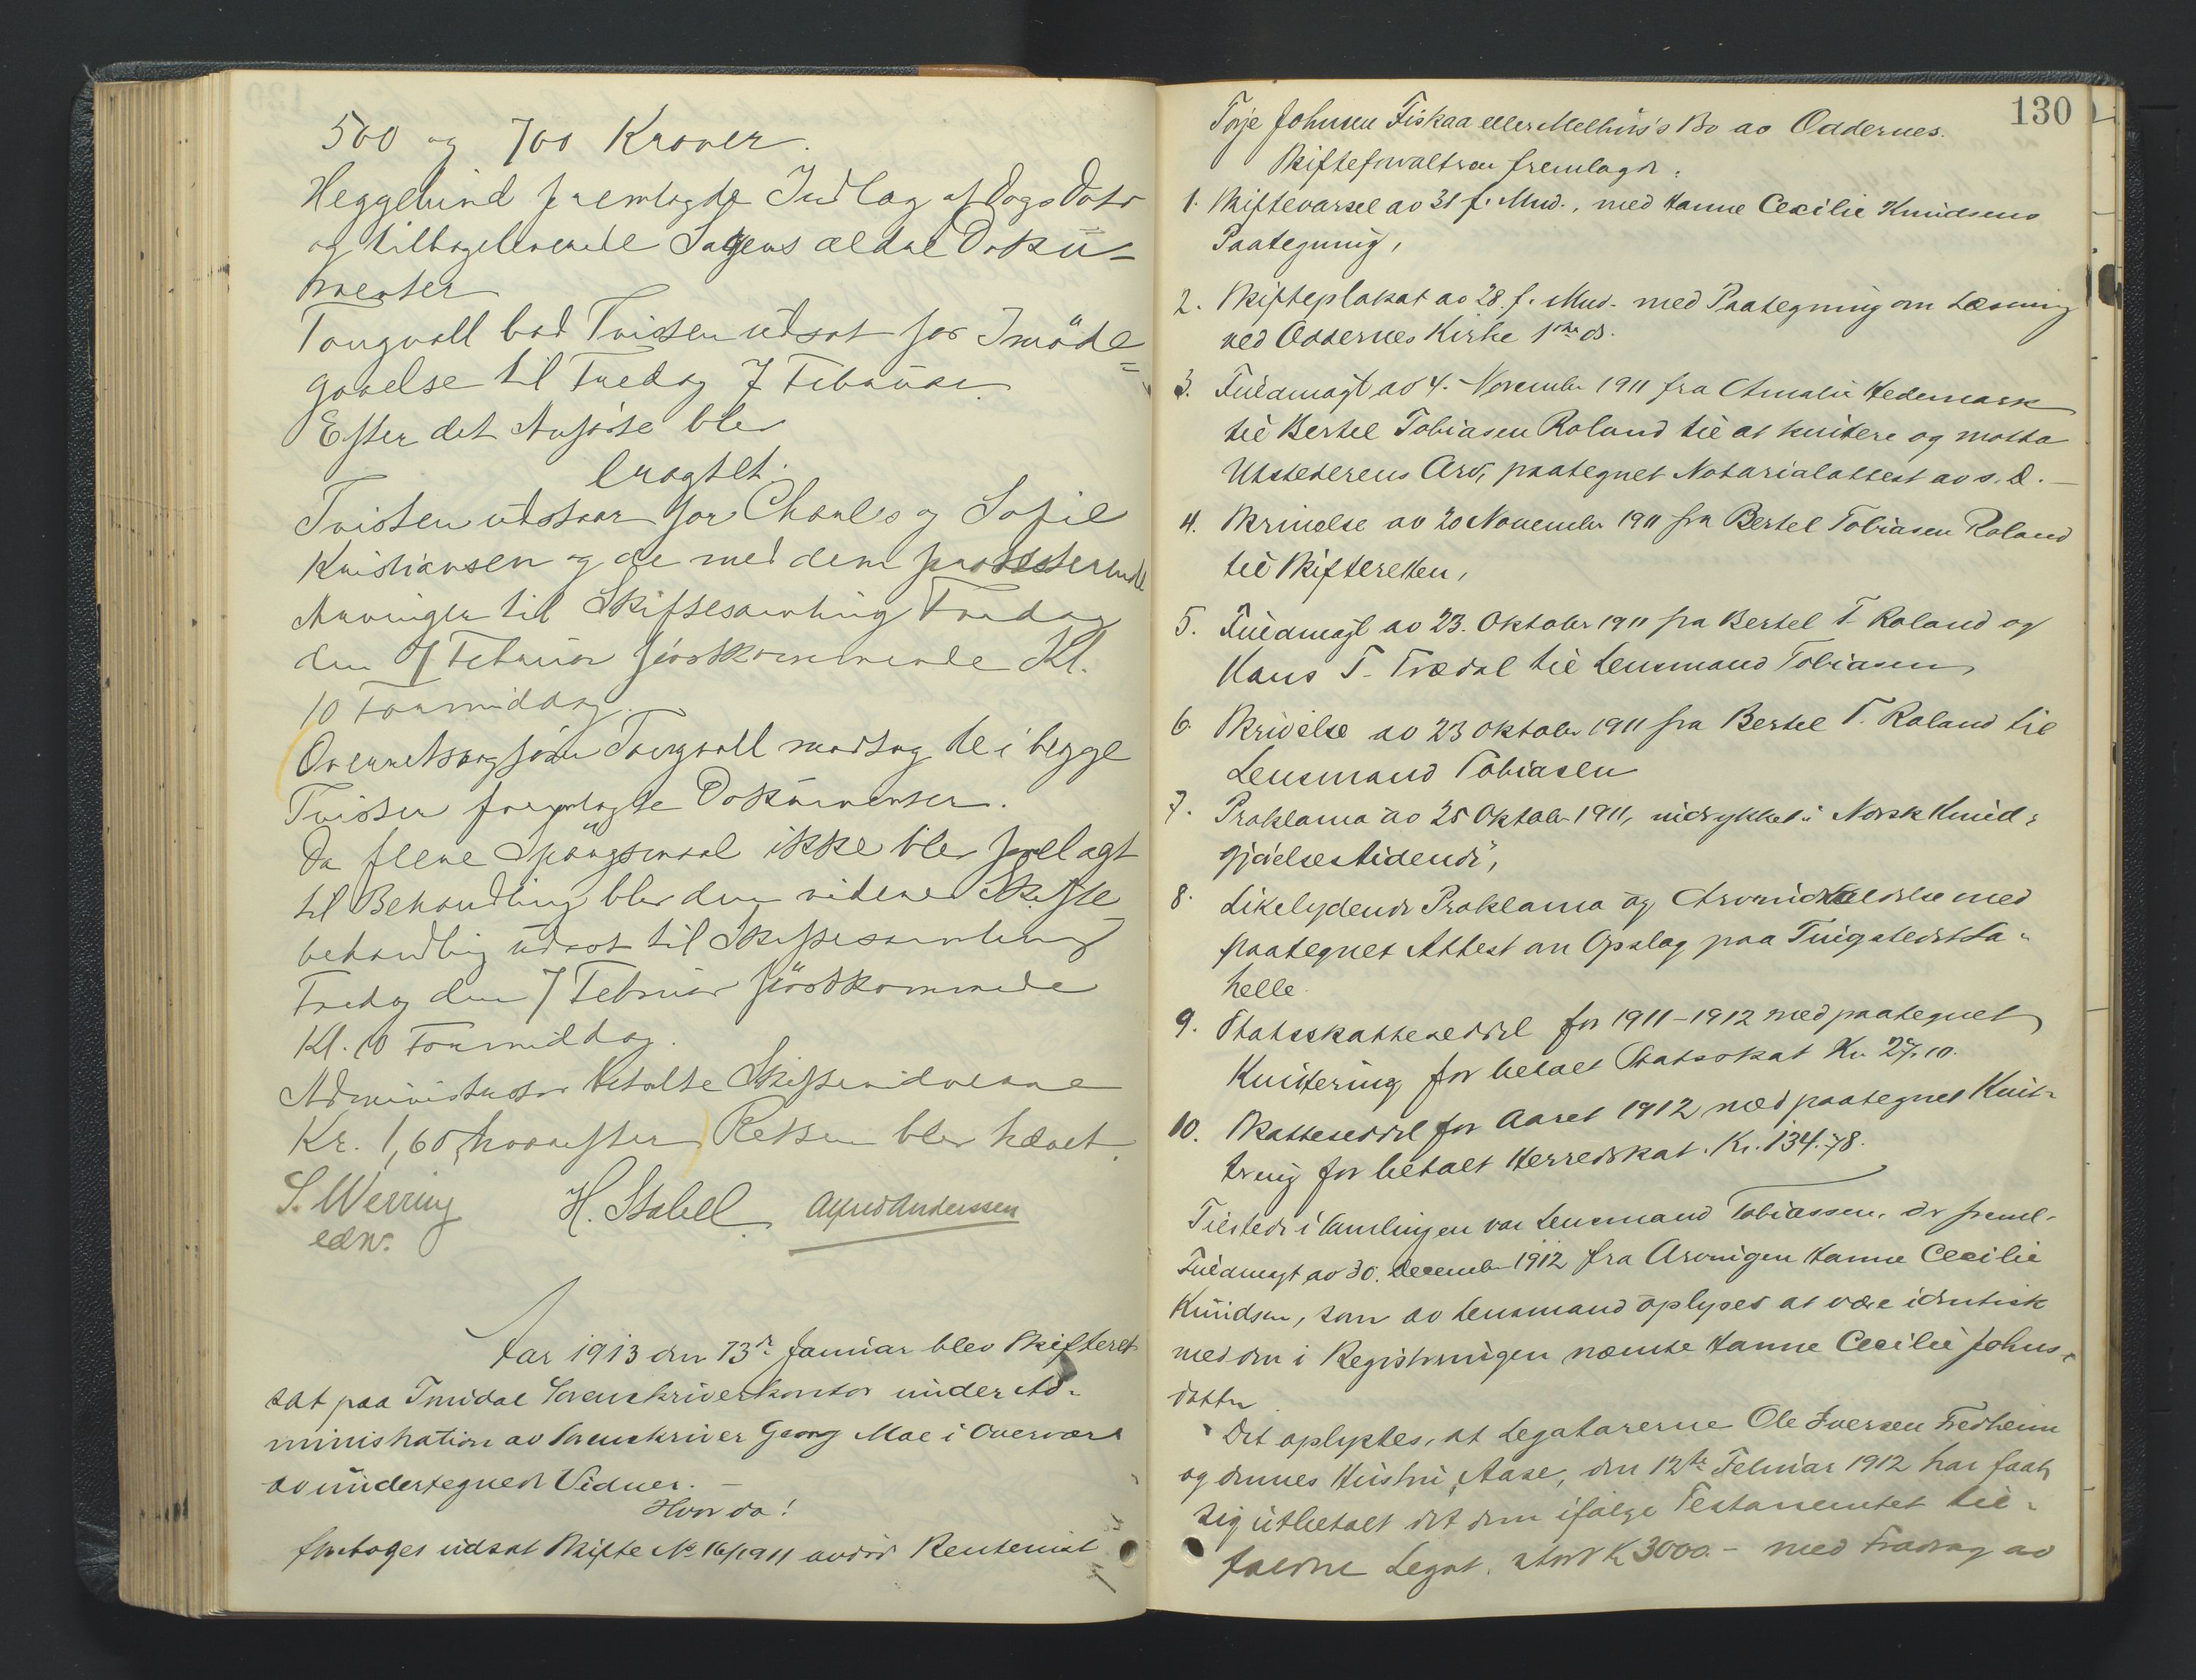 500 og 700 Kroner.
Heggelund fremlagde Indlæg af Dags Dato
og tilbageleverede Sagens ældre Doku-
menter
Tangvall bad Tvisten udsat for Imøde-
gaaelse til Fredag 7 Februar.
Efter det Anførte blev
eragtet:
Tvisten udstaar for Charles og Sofie
Kristiansen og de med dem procederende
Arvinger til Skiftesamling Fredag
den 7 Februar førstkommende Kl.
10 Formiddag.
Overretssagfører Tangvall modtog de i begge
Tvister fremlagte Dokumenter.
Da flere Spørgsmaal ikke blev forelagt
til Behandling blev den videre Skifte-
behandling udsat til Skiftesamling
Fredag den 7 Februar førstkommende
Kl. 10 Formiddag.
Administrator betalte Skiftevidnerne
Kr. 1,60, hvorefter Retten blev hævet.
S. Werring H. Stabell Alfred Anderssen
edv.
Aar 1913 den 13de Januar blev Skifteret
sat paa Torridal Sorenskriverkontor under Ad-
ministration av Sorenskriver Georg Moe i Overvær
av undertegnede Vidner. —
Hvor da!
foretoges udsat Skifte No 16/1911 avdød Rentenist
130
Torje Johnsen Fiskaa eller Melhus's Bo av Oddernes.
Skifteforvalteren fremlagde:
1. Skiftevarsel av 31 f. Mnd., med Hanne Cecilie Knudsens
Paategning,
2. Skifteplakat av 28 f. Mnd. med Paategning om Læsning
ved Oddernes Kirke 1ste ds.
3. Fuldmagt av 4. November 1911 fra Amalie Hedemark
til Bertel Tobiasen Roland til at kvitere og motta
Utstederens Arv, paategnet Notarialattest av s. d. —
4. Skrivelse av 20 November 1911 fra Bertel Tobiasen Roland
til Skifteretten,
5. Fuldmagt av 23. Oktober 1911 fra Bertel T. Roland og
Hans T. Trædal til Lensmand Tobiasen
6. Skrivelse av 23 Oktober 1911 fra Bertel T. Roland til
Lensmand Tobiasen
7. Proklama av 25 Oktober 1911, indrykket i Norsk Kund-
gjørelsestidende,
8. Likelydende Proklama og Arveindkaldelse med
paategnet Attest om Opslag paa Tingstedet Sa-
helle
9. Statsskatteseddel for 1911-1912 med paategnet
Kvittering for betalt Statsskat Kr 27.10.
10. Skatteseddel for Aaret 1912 med paategnet Kvit-
tering for betalt Herredskat. Kr. 134.78.
Tilstede i Samlingen var Lensmand Tobiassen, der freml.
Fuldmagt av 30. December 1912 fra Arvingen Hanne Cecilie
Knudsen, som av Lensmand oplyses at være identisk
med den i Registreringen nævnte Hanne Cecilie Johns-
datter
Det oplystes, at Legatarerne Ole Iversen Fredheim
og dennes Hustru, Aase, den 12te Februar 1912 har faat
sig utbetalt det dem ifølge Testamentet til-
faldne Legat, stort K 3000.- med Fradrag av